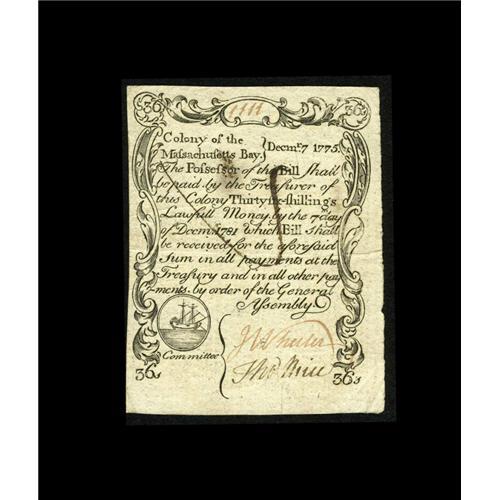 36s 36s
1111
Colony of the
Massachusetts Bay. } Decm.r 7 1775.
The Possessor of this Bill Shall
be paid by the Treasurer of
this Colony Thirtysix shillings
Lawfull Money by the 7 day
of Decem. 1781 which Bill Shall
be received for the aforesaid
Sum in all payments at the
Treasury and in all other pay-
ments. by order of the General
Assembly
Committee
36s 36s